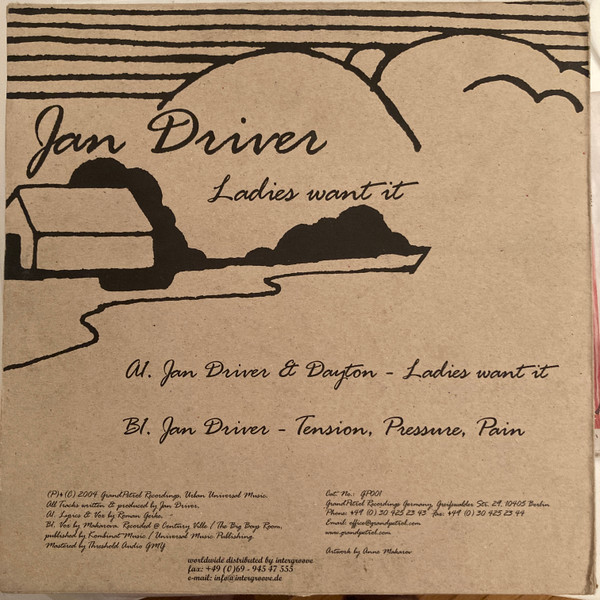 Jan Driver
Ladies want it
A1. Jan Driver & Dayton - Ladies want it
B1. Jan Driver - Tension, Pressure, Pain
(P)+(C) 2004 GrandPetrol Recordings, Urban Universal Music.
All Tracks written & produced by Jan Driver.
A1. Lyrics & Vox by Roman Geike. -
B1. Vox by Makarova. Recorded @ Century Ville / The Big Boys Room.
published by Kombinat Music / Universal Music Publishing
Mastered by Threshold Audio GMY
worldwide distributed by intergroove
fax: +49 (0)69 - 945 47 555
e-mail: info@intergroove.de
Cat. No.: GP001
GrandPetrol Recordings Germany, Greifswalder Str. 29, 10405 Berlin
Phone +49 (0) 30 425 23 43 Fax: +49 (0) 30 425 23 44
Email: office@grandpetrol.com
www.grandpetrol.com
Artwork by Anna Makarov